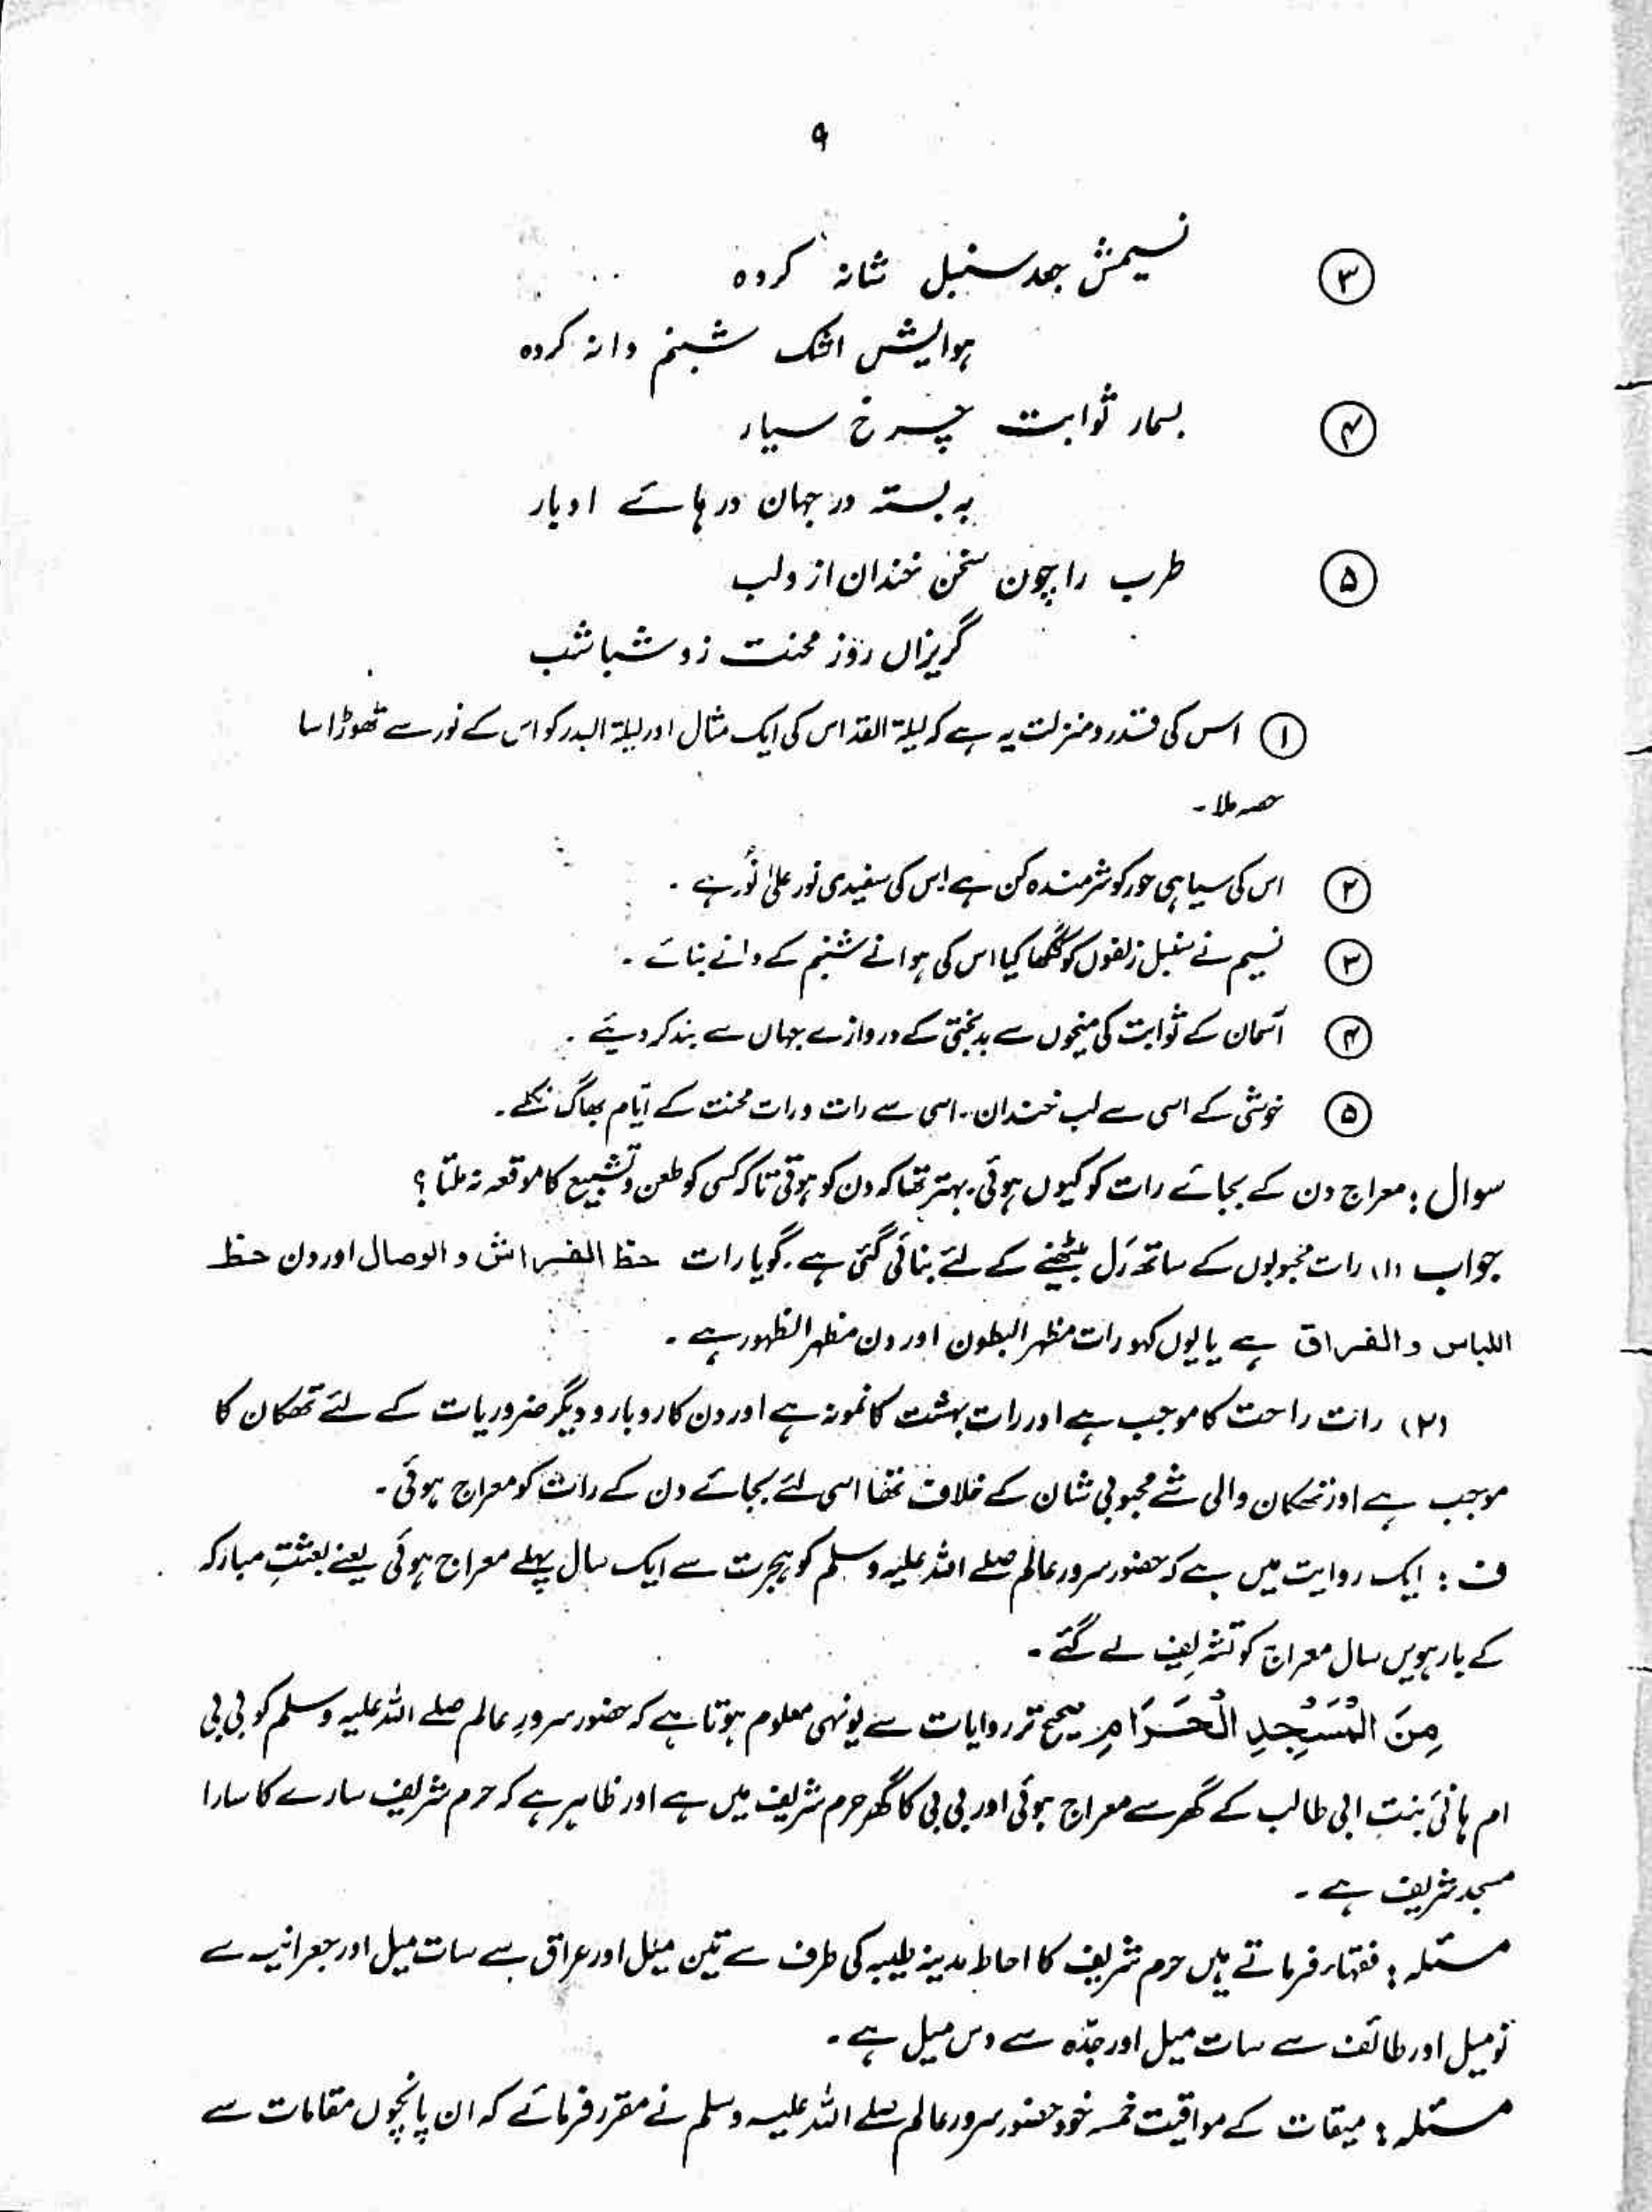 ۹
③ نسیمش جعد سنبل شانہ کردہ
ہوایش اشک شبنم دانہ کردہ
④ بسمار ثوابت چرخ سیار
بہ بستہ در جہان درہائے ادبار
⑤ طرب را چون سخن خندان ازو لب
گریزاں روز محنت زو شباشب
① اس کی قدر و منزلت یہ ہے کہ لیلۃ القد اس کی ایک مثال اور لیلۃ البدر کو اس کے نور سے تھوڑا سا
حصہ ملا۔
② اس کی سیاہی حور کو شرمندہ کن ہے اس کی سفیدی نور علیٰ نُور ہے۔
③ نسیم نے سنبل زلفوں کو کنگھا کیا اس کی ہوا نے شبنم کے دانے بنائے۔
④ آسمان کے ثوابت کی میخوں سے بدبختی کے دروازے جہاں سے بند کر دیئے۔
⑤ خوشی کے اسی سے لب خندان۔ اسی سے رات و رات محنت کے ایّام بھاگ نکلے۔
سوال : معراج دن کے بجائے رات کو کیوں ہوئی۔ بہتر تھا کہ دن کو ہوتی تاکہ کسی کو طعن و تشنیع کا موقعہ نہ ملتا ؟
جواب (۱) رات محبوبوں کے ساتھ رَل بیٹھنے کے لئے بنائی گئی ہے۔ گویا رات حظ الفراش و الوصال اور دن حظ
اللباس و الفراق ہے یا یوں کہو رات مظہر البطون اور دن مظہر الظہور ہے۔
(۲) رات راحت کا موجب ہے اور رات بہشت کا نمونہ ہے اور دن کاروبار و دیگر ضروریات کے لئے تھکان کا
موجب ہے اور تھکان والی شے محبوبی شان کے خلاف تھا اسی لئے بجائے دن کے رات کو معراج ہوئی۔
ف : ایک روایت میں ہے کہ حضور سرور عالم صلے اللہ علیہ وسلم کو ہجرت سے ایک سال پہلے معراج ہوئی یعنے بعثتِ مبارکہ
کے بارہویں سال معراج کو تشریف لے گئے۔
مِنَ الْمَسْجِدِ الْحَرَامِ صحیح تر روایات سے یونہی معلوم ہوتا ہے کہ حضور سرورِ عالم صلے اللہ علیہ وسلم کو بی بی
ام ہانی بنت ابی طالب کے گھر سے معراج ہوئی اور بی بی کا گھر حرم شریف میں ہے اور ظاہر ہے کہ حرم شریف سارے کا سارا
مسجد شریف ہے۔
مسئلہ : فقہاء فرماتے ہیں حرم شریف کا احاطہ مدینہ طیبہ کی طرف سے تین میل اور عراق سے سات میل اور جعرانیہ سے
نو میل اور طائف سے سات میل اور جدّہ سے دس میل ہے۔
مسئلہ : میقات کے مواقیت خمسہ خود حضور سرور عالم صلے اللہ علیہ وسلم نے مقرر فرمائے کہ ان پانچوں مقامات سے